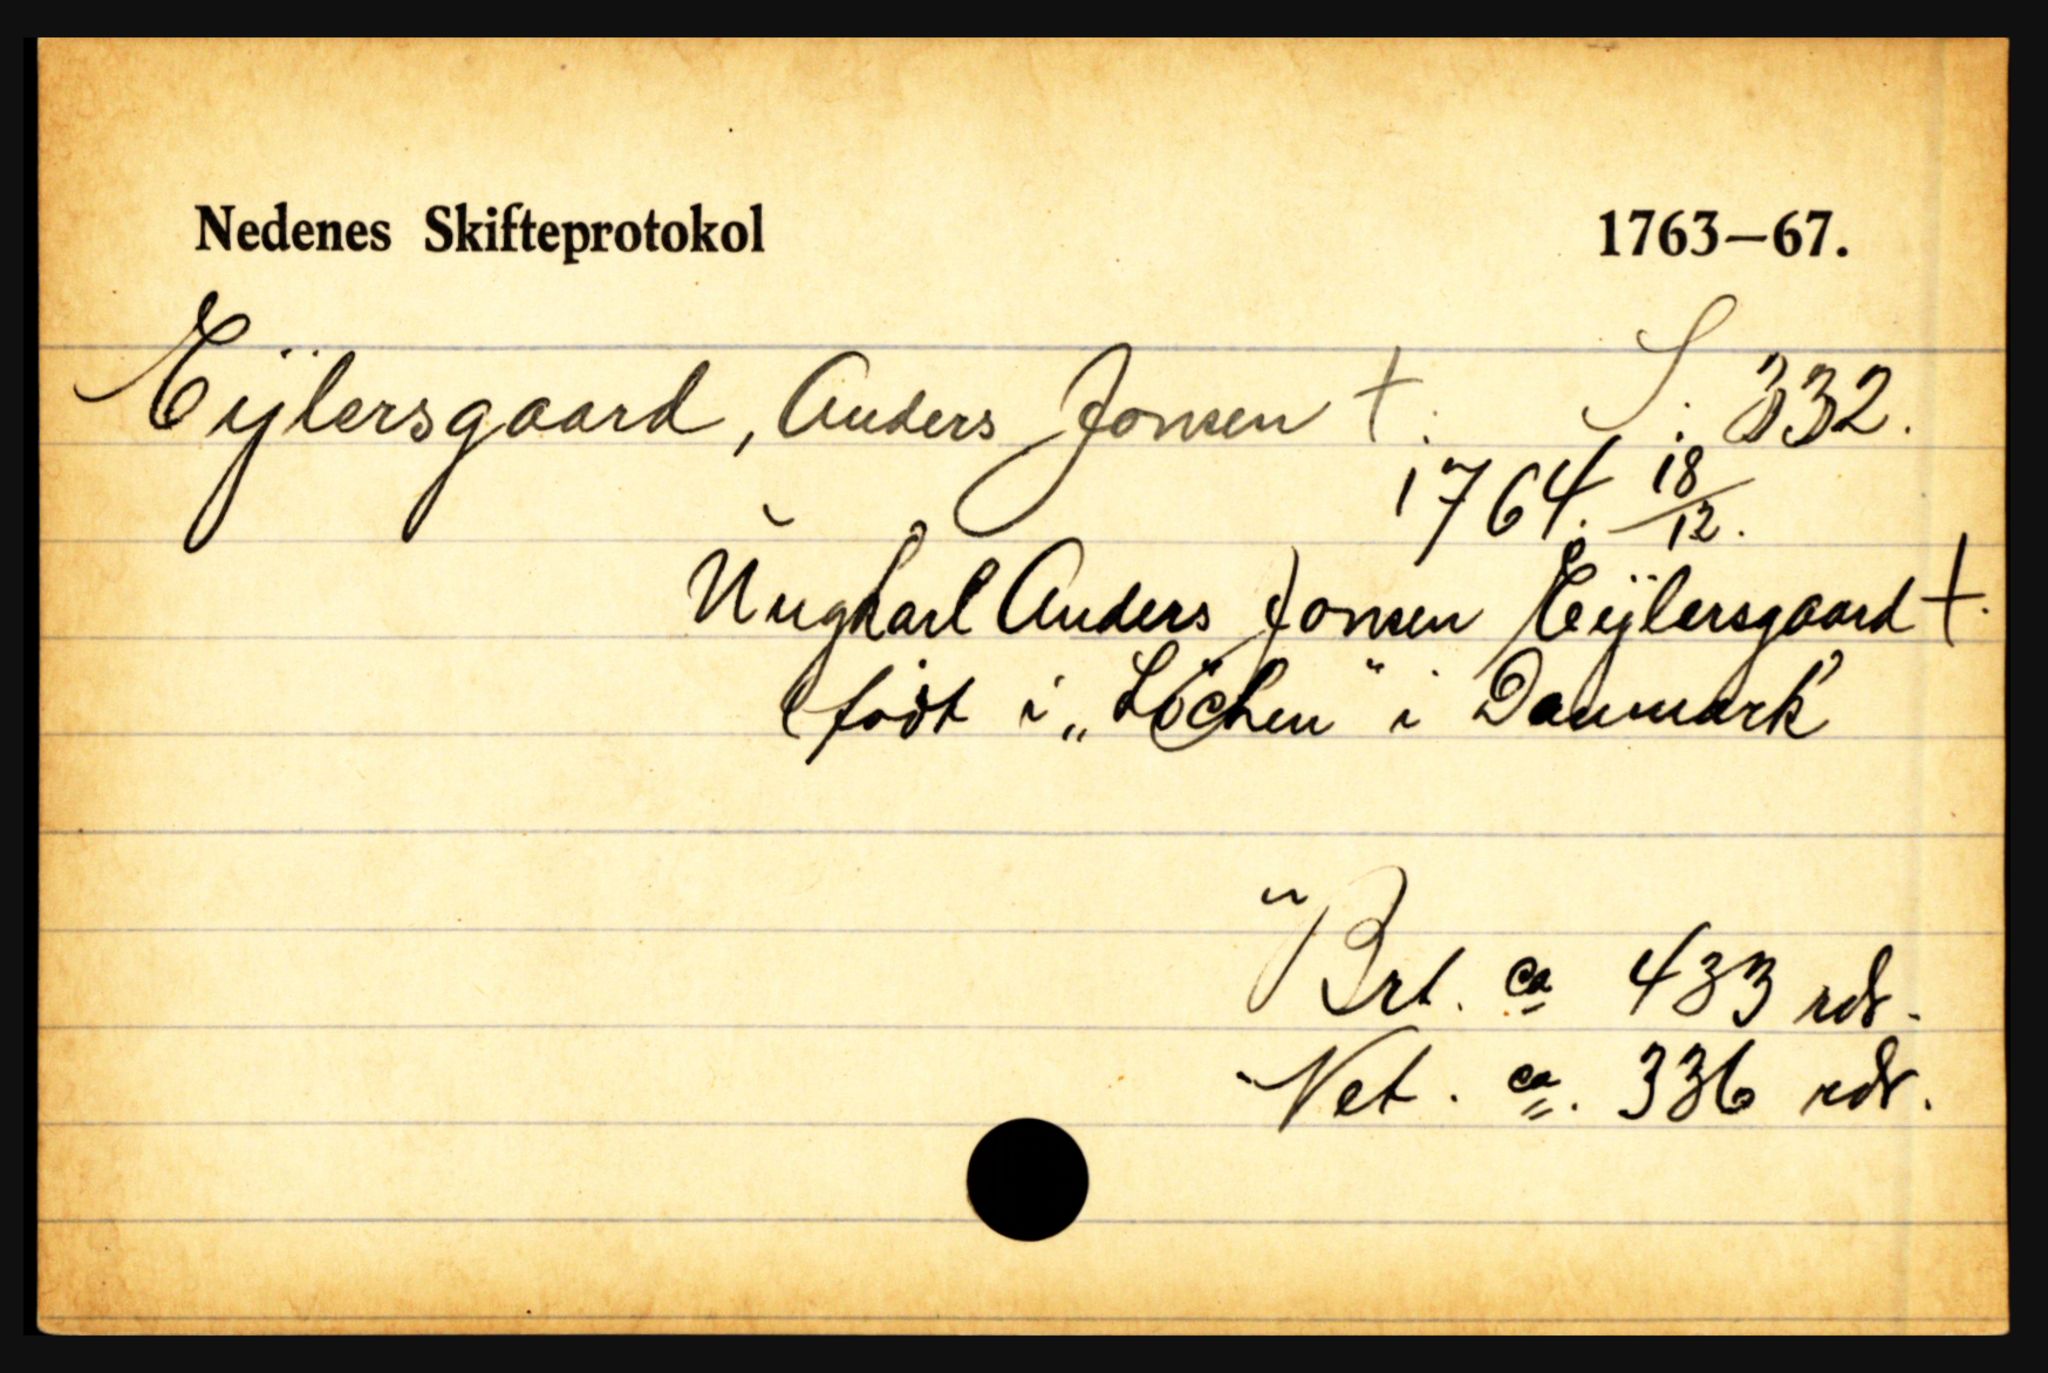 Nedenes Skifteprotokol 1763—67.
Eÿlersgaard, Anders Jonsen †. S. 332.
1764. 18/12.
Ungkarl Anders Jonsen Eÿlersgaard †.
født i „Löchen" i Danmark
Brt. ca 433 rdr.
Net. ca. 336 rdr.